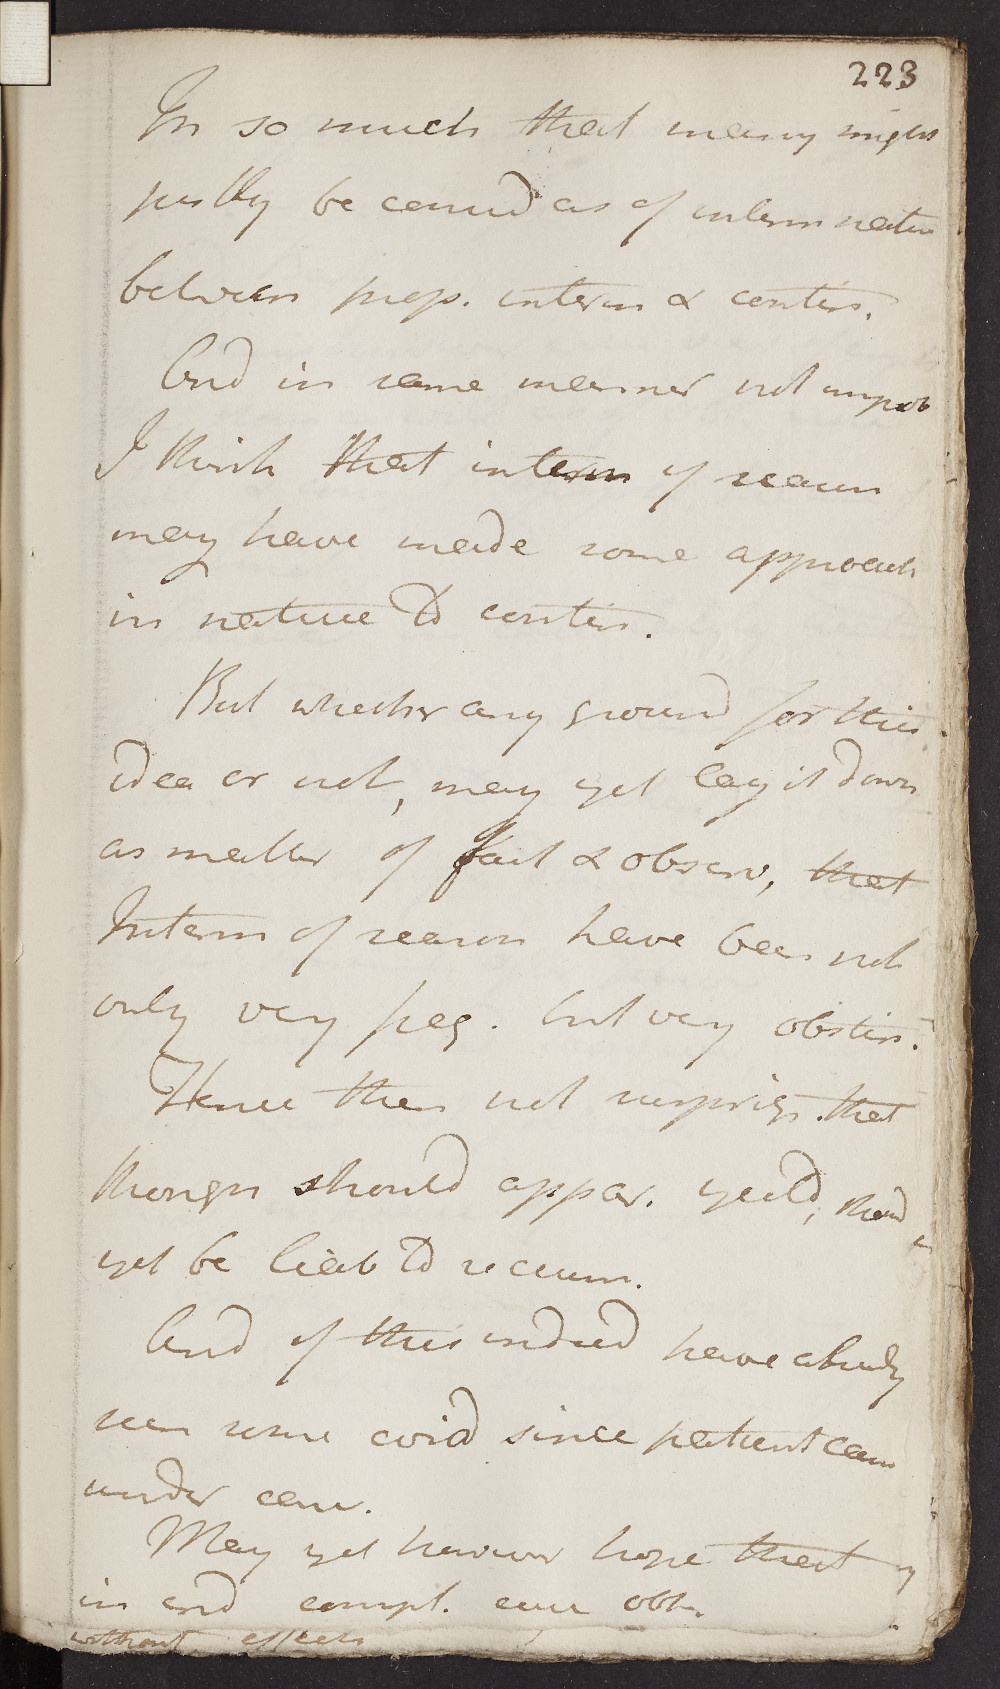 223
In so much that many might
justly be consid as of interm natur
between prop. interm & contin.
And in same manner not improb
I think that interm of reason
may have made some approach
in nature to contin.
But whether any ground for this
idea or not, may yet lay it down
as matter of fact & observ, that
Interm of reason have been not
only very freq. but very obstin.
Hence then not surprisg. that
though should appar. yield, should
yet be liab to recurr.
And of this indeed have already
seen some evid since patient came
under care.
May yet however hope that
in end compl. cure obt.
without effects